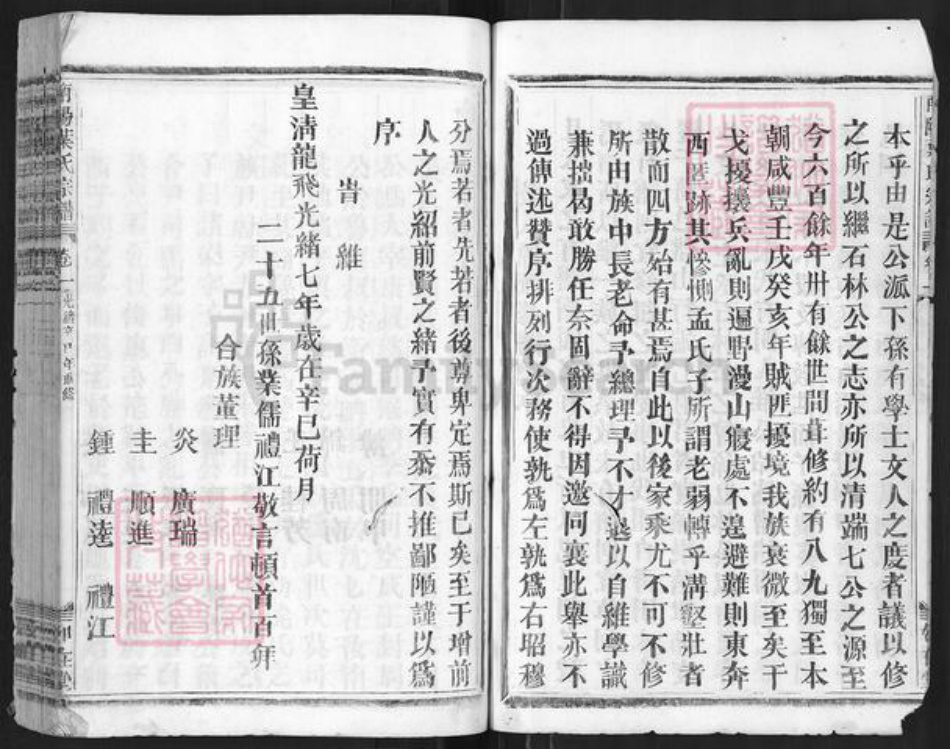 本乎由是公派下孫有學士文人之度者議以修
之所以繼石林公之志亦所以清端七公之源至
今六百餘年卅有餘世間葺修約有八九獨至本
朝咸豐壬戌癸亥年賊匪擾境我族衰微至矣干
戈擾攘兵亂則遍野漫山寢處不遑避難則東奔
西匿跡其慘惻孟氏子所謂老弱轉乎溝壑壯者
散而四方殆有甚焉自此以後家乘尤不可不修
所由族中長老命予總理予不才退以自維學識
兼拙曷敢勝任奈固辭不得因邀同襄此舉亦不
過傳述贊序排列行次務使孰爲左孰爲右昭穆
分焉若者先若者後尊卑定焉斯已矣至于增前
人之光紹前賢之緒予實有忝不推鄙陋謹以爲
序
旹維
皇清龍飛光緒七年歲在辛巳荷月
二十五世孫業儒禮江敬言頓首百拜
合族董理
炎 廣瑞
圭 順進
鍾 禮逵 禮江
南陽葉氏宗譜 卷一
FamilySearch